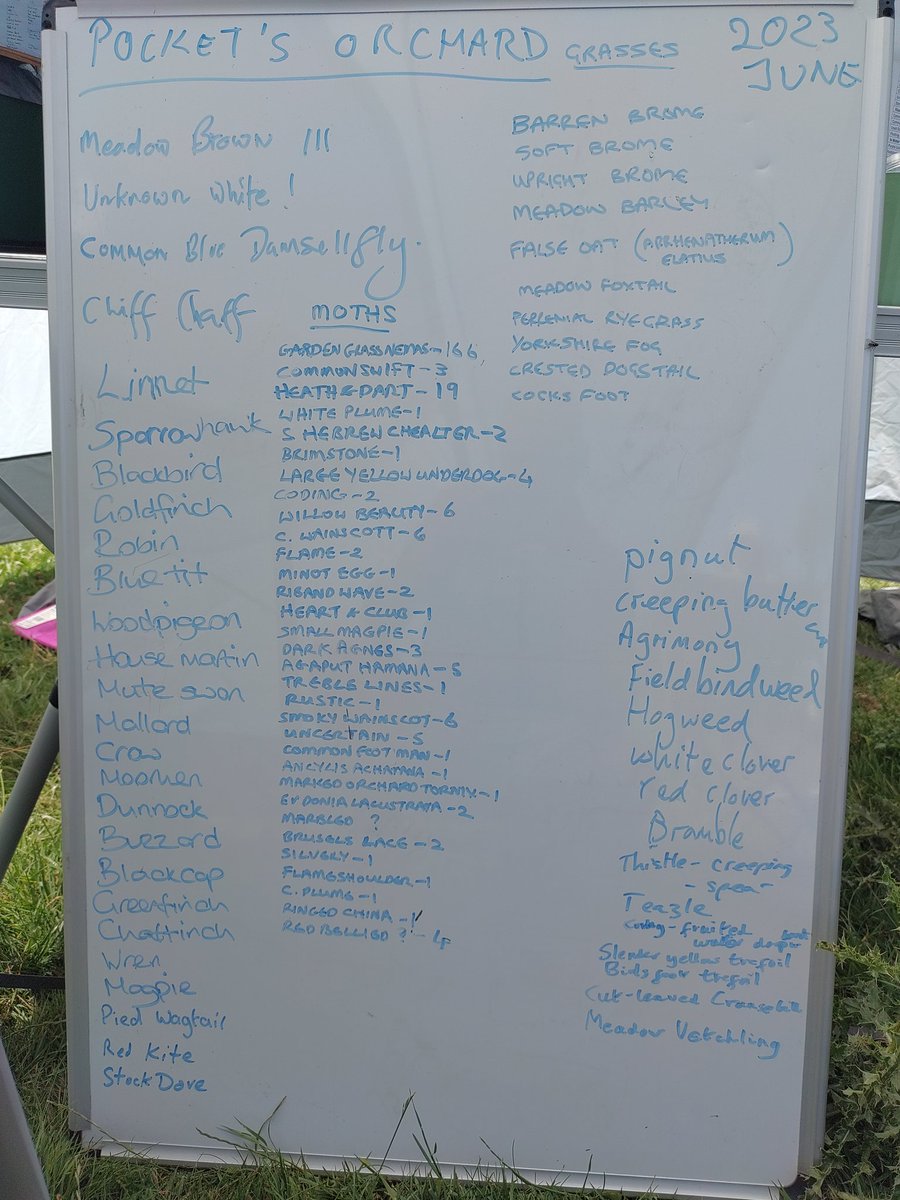 POCKET'S ORCHARD
GRASSES
2023
JUNE
Meadow Brown III
Unknown white !
Common Blue Damsellfly.
Chiff Chaff
Linnet
Sparrowhawk
Blackbird
Goldfinch
Robin
Blue tit
Woodpigeon
House martin
Mute swan
Mallard
Crow
Moorhen
Dunnock
Buzzard
Blackcap
Greenfinch
Chaffinch
Wren
Magpie
Pied Wagtail
Red Kite
Stock Dove
MOTHS
GARDEN GLASSNEMAS - 166
COMMON SWIFT - 3
HEATH & DART - 19
WHITE PLUME - 1
S HEBREW CHEALTER - 2
BRIMSTONE - 1
LARGE YELLOW UNDERDOG - 4
CODING - 2
WILLOW BEALITY - 6
C. WAINSCOTT - 6
FLAME - 2
MINOT EGG - 1
RIBAND WAVE - 2
HEART & CLUB - 1
SMALL MAGPIE - 1
DARK AGNES - 3
AGAPUT HAMANA - 5
TREBLE LINES - 1
RUSTIC - 1
SMOKY WAINSCOT - 6
UNCERTAIN - 5
COMMON FOOT MAN - 1
ANCYLIS ACHATANA - 1
MARKED ORCHARD TORNIX - 1
EUDONIA LACUSTRATA - 2
MARBLED ?
BRUSELS LACE - 2
SILVERY - 1
FLAMESHOULDER - 1
C. PLUME - 1
RINGED CHINA - 1
RED BELLIED ? - 4
BARREN BROME
SOFT BROME
UPRIGHT BROME
MEADOW BARLEY
FALSE OAT (ARRHENATHERUM ELATIUS)
MEADOW FOXTAIL
PERLENIAL RYEGRASS
YORKSHIRE FOG
CRESTED DOGSTAIL
COCKS FOOT
pignut
Creeping butter cup
Agrimony
Field bindweed
Hogweed
White clover
red clover
Bramble
Thistle - creeping
- spear -
Teazle
fruited water
Slender yellow trefoil
Birds foot trefoil
Cut-leaved Cranesbill
Meadow Vetchling